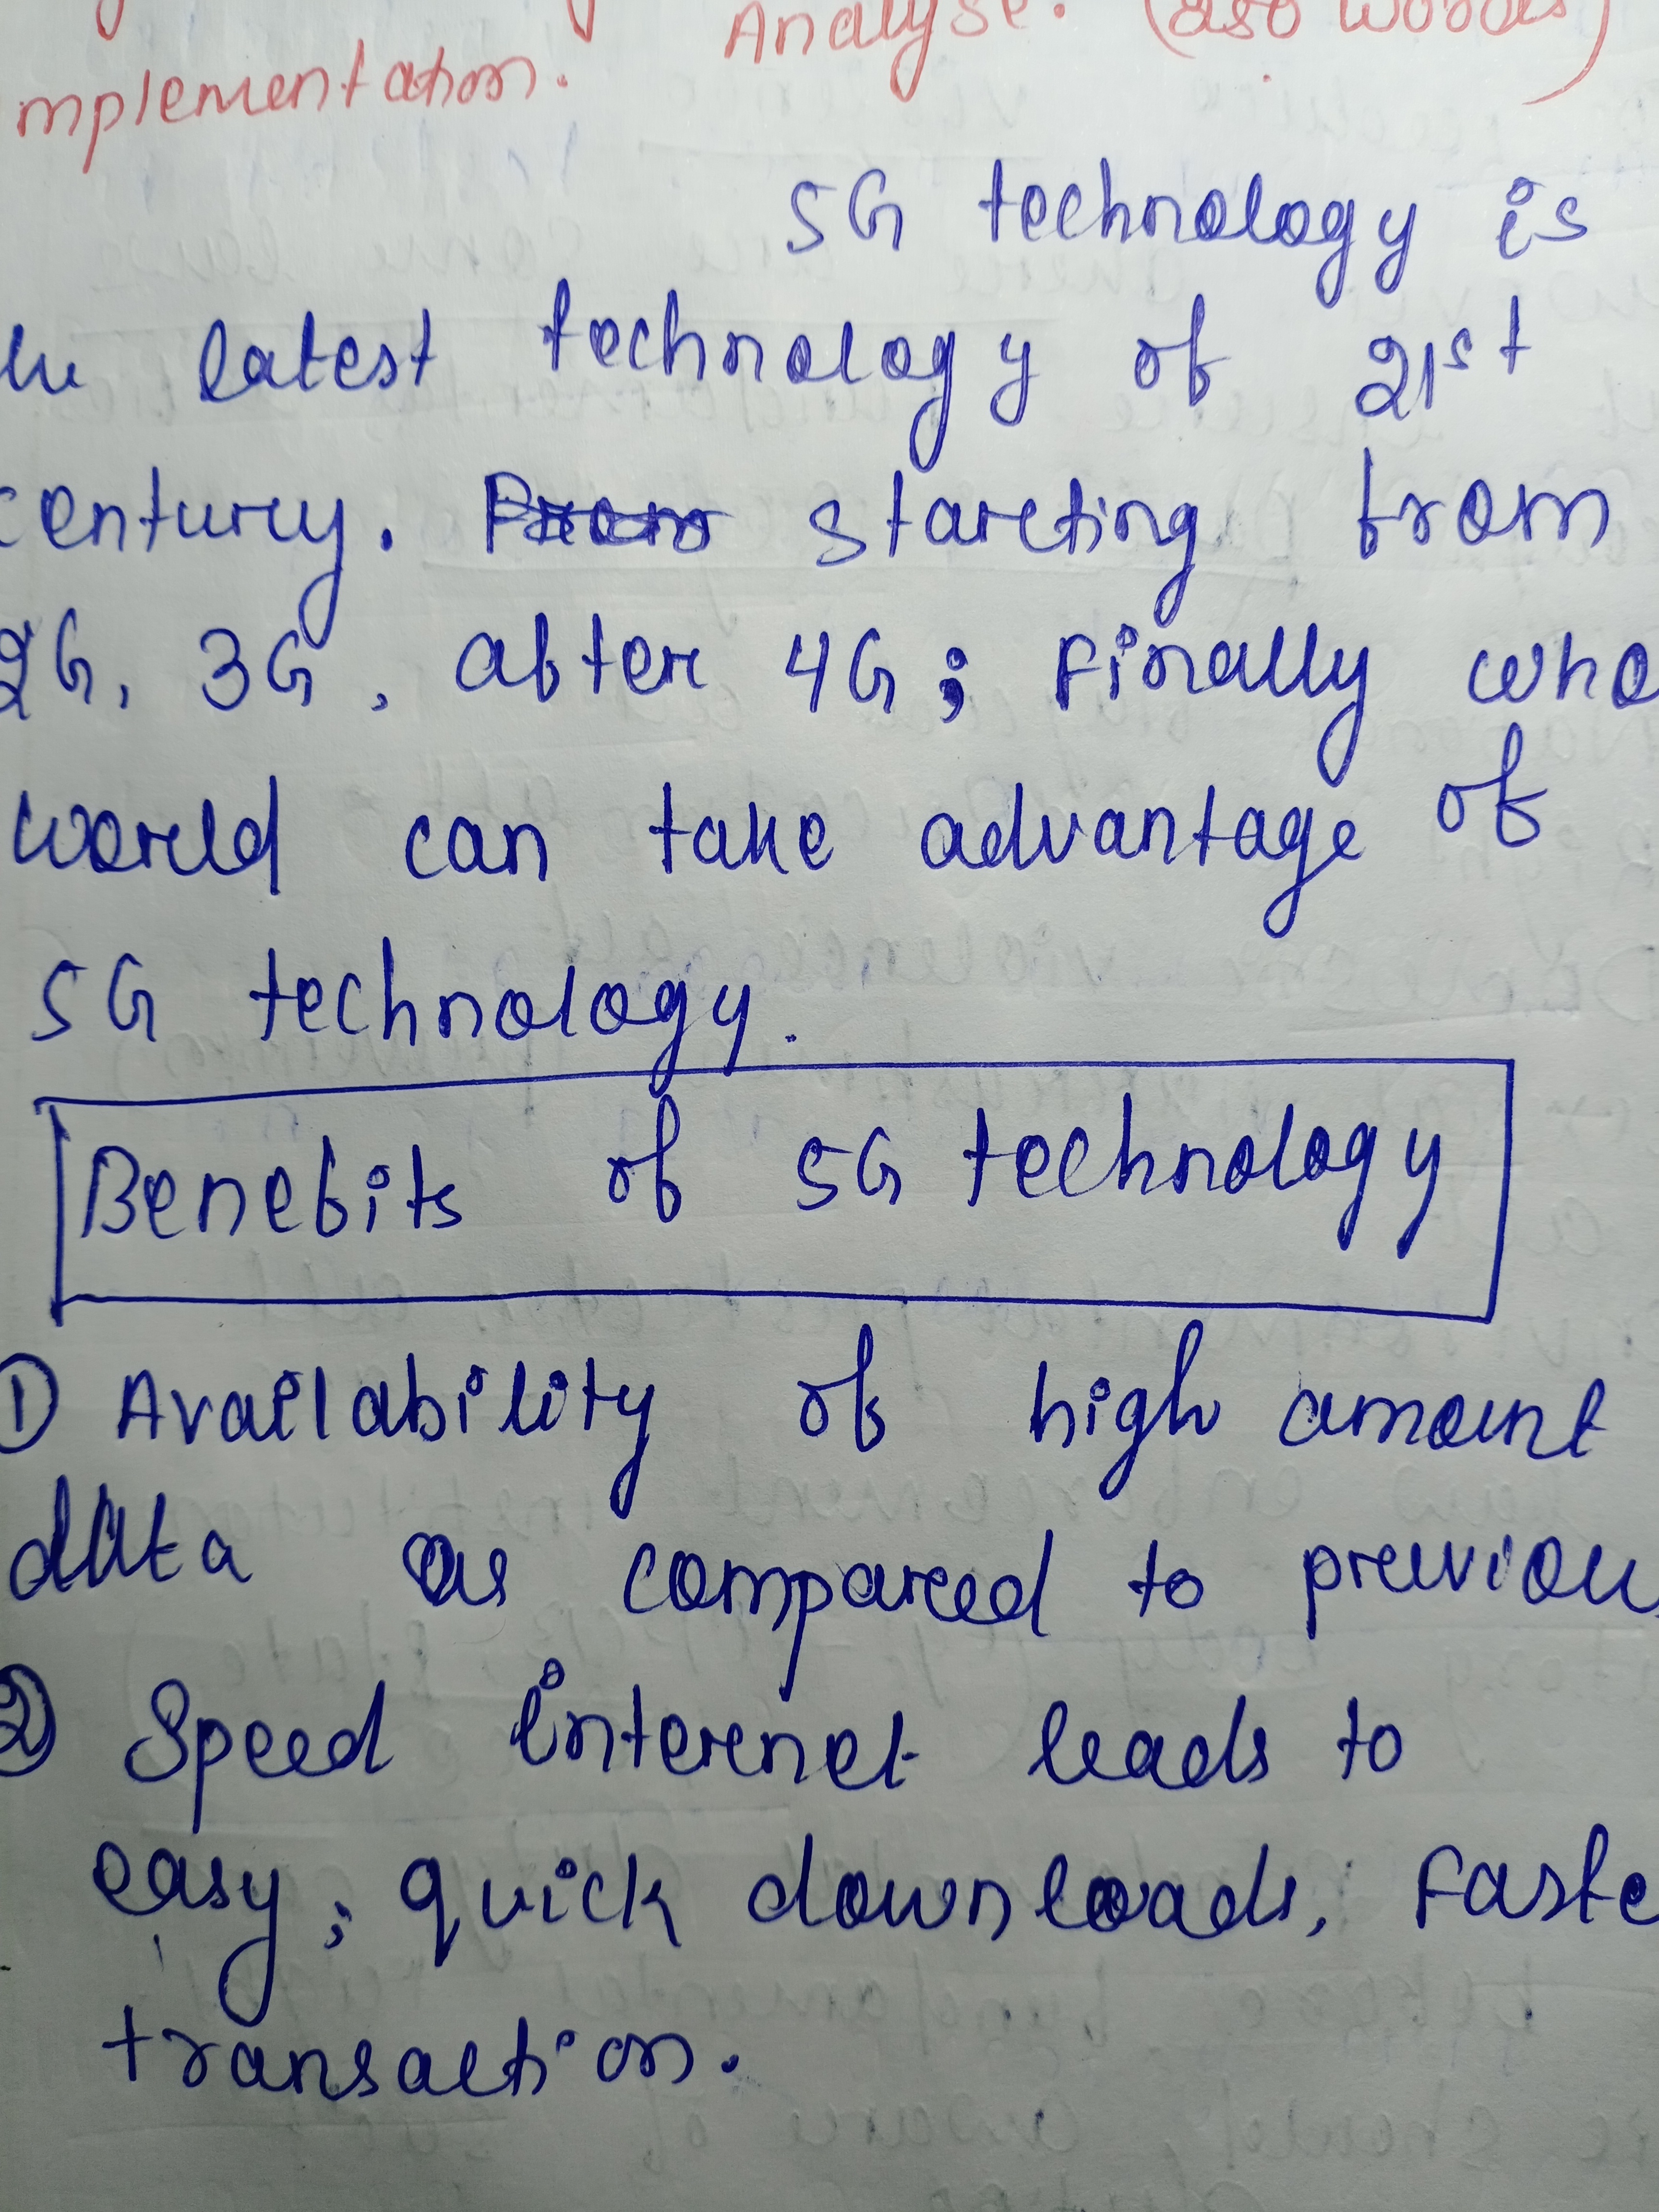 Analyse. (250 words)
mplementation.
5G technology is
he latest technology of 21st
century. From starting from
2G, 3G, after 4G; Finally who
world can take advantage of
5G technology.
Benefits of 5G technology
① Availability of high amount
data as compared to previou
② Speed internet leads to
easy, quick downloads, Faste
transaction.